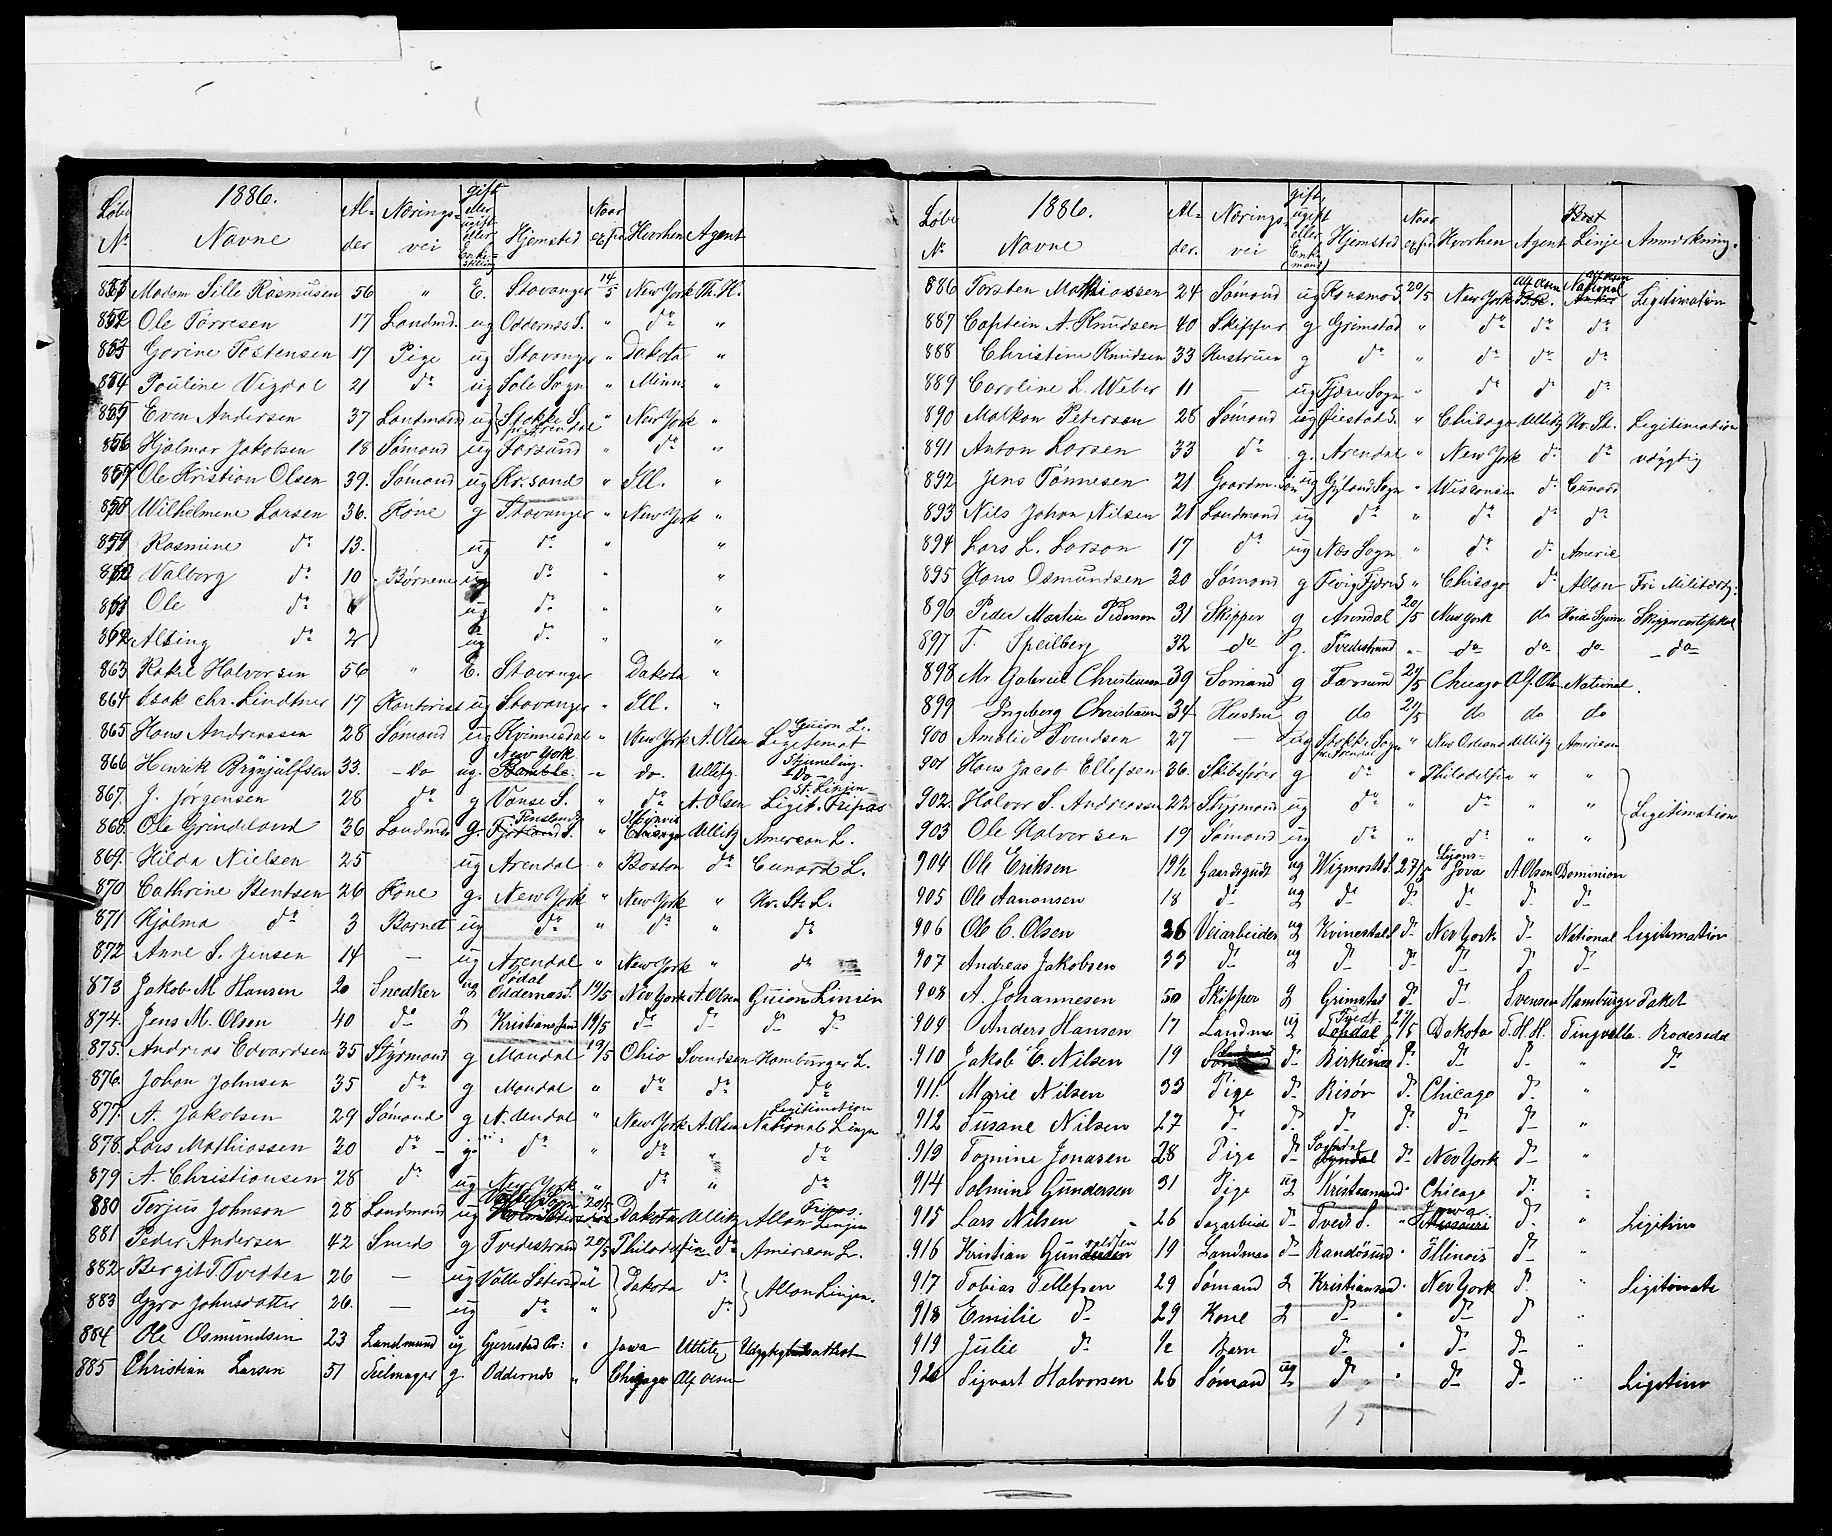 1886.
Løbe No Navne Alder Næringsvei gift eller ugift eller Enkestilling Hjemsted Naar exped Hvorhen Agent
851 Madam Sille Rasmusen 56 " E. Stavanger 14/5 New York Th. H.
852 Ole Tørresen 17 Landmd. ug Oddernes S. " do "
853 Gorine Tostensen 17 Pige ug Stavanger " Dakota "
854 Pouline Vigdal 21 do ug Sole Sogn " Minn "
855 Even Andersen 37 Landmand ug Stokke S. pr Arendal " New York "
856 Hjalmar Jakobsen 18 Sømand ug Farsund " do "
857 Ole Kristian Olsen 39. Sømand ug Kr.sand " Ill. "
858 Wilhelmine Larsen 36. Kone g Stavanger " New York "
859 Rasmine do 13. ug do " "
860 Valborg do 10 Børnene ug do " "
861 Ole do 6 ug do " "
862 Alting do 2 ug do " "
863 Rakel Halvorsen 56 " E. Stavanger Dakota "
864 Isak Chr. Lindtner 17 Kontorist ug Stavanger " Ill. "
865 Hans Andreassen 28 Sømand ug Kvinnesdal " New York A. Olsen Guion L. Legitimat
866 Henrik Brynjulfsen 33. - do ug. New York Bamble - do. Ullitz. do
867. J. Jørgensen 28 do g Vanse S. " do A. Olsen St. Linjen Legit. Fripas
868. Ole Grindeland 36 Landmd g. Fjotland S. " Chicago Ullitz American L.
869. Hilda Nielsen 25 ug Arendal " Boston do Cunard L.
870 Cathrine Bentsen 26 Kone g. New York " New York " Kr. St. L.
871 Hjalma do 3 Barnet ug do " do " do
872 Anne S. Jensen 14 - ug Arendal " New York " do
873 Jakob M Hansen 20 Snedker ug Sødal Oddernes S. 19/5 New York A. Olsen Guion Linien
874. Jens M. Olsen 40 do g Kristiansand 19/5 do do do do
875. Andreas Edvardsen 35 Styrmand g Mandal 19/5 Ohio Svendsen Hamburger L.
876. Johan Johnsen 35 do g Mandal " do do do
877. A. Jakobsen 29 Sømand g N. Audal " New York A. Olsen Legitimation National Linjen
878. Lars Mathiassen 30 do - g. do " do " do
879 A. Christiansen 28 do ug New York " do " do
880 Terjus Johnson 28 Landmand ug Valle Sogn 20/5 Dakota Ullitz Fripas. Allan Linjen
881 Peder Andersen 42 Smed g Tvedestrand 20/5 Philadefia do American L.
882 Bergit T Tvedten 26 - ug Valle Sætersdal Dakota do Allan Linjen.
883 Gyro Johnsdatter 26. - ug do " do
884 Ole Osmundsen 23 Landmand ug Gjerrestad Pr: " Jowa Ullitz Udygtighedsattest
885 Christian Larsen 51 Seilmager g. Oddernes " Chicago Alf Olsen
1886.
Løbe No Navne Alder. Næringsvei gift, ugift eller Enkemand) Hjemsted Naar exped Hvorhen Agent Bret Linje Anmærkning.
886 Torsten Mathiassen 24 Sømand ug Konsmo S. 20/5 New York Alf Olsen National Legitimation
887 Captein A. Knudsen 40 Skipper g Grimstad " do do do
888 Christine Knudsen 33 Hustruen g do " do do do
889 Caroline L. Weber 11 - ug Fjære Sogn " do do do
890 Malkon Petersen 28 Sømand ug Øiestad S. " Chicago Ullitz Kr. St. Legitimation
891 Anton Larsen 33 do g. Arendal " New York do do
892 Jens Tønnesen 21 Gaardm. Søn ug Gyland Sogn " Wisconsin do Cunard
893 Nils Johan Nilsen 21 Landmand ug do " do do do
894 Lars L. Larson 17 do ug Næs Sogn " do do Americ
895 Hans Osmundsen 30 Sømand g Fevig Fjære S " Chicago do Allan Fri Militærtj.
896 Peder Martin Pedersen 31 Skipper g Arendal 20/5 New York do Hvide Stjerne Skippercertifikat
897 T. Speilberg 32 do g. Tvedestrand - do do do - do -
898 Mr Gabriel Christensen 39 Sømand g Farsund 21/5 Chicago Alf. Ols National.
899 Ingeborg Christensen 34 Hustru g do 21/5 do do do
900 Amalie Svendsen 27 - ug Stokke Sogn pr Arendal " New Orleans Ullitz American
901 Hans Jacob Ellefsen 36. Skibsfører g do " Philadelfia " "
902. Halvor S. Andreassen 22 Styrmand ug do " do " " Legitimation
903 Ole Halvorsen 19 Sømand ug do " do " "
904 Ole Eriksen 19½ Gaardsgudt ug Wigmostad S. 27/5 Lyons- Jova A Olsen Dominion
905 Ole Aanonsen 18 do ug do do do do do
906 Ole C. Olsen 26 Veiarbeider ug Kvinesdal S do New York do National Legitimation
907 Andreas Jakobsen 33 do ug do do do do do
908 A. Johannesen 50 Skipper g Grimstad do do Svensen Hamburger Paket
909 Anders Hansen 17 Landma ug Tvedt 21/5 Dakota T. H. H. Tingvalla
910 Jakob E. Nilsen 19 do Birkenæs do do do " do
911. Marie Nilsen 33 Pige do Risør do Chicago do "
912 Susane Nilsen 27 do do do do do do "
913 Tomine Jonasen 28 Pige do do New York do "
914 Tolmine Gundersen 31 Pige ug Kristiansand Chicago do "
915 Lars Nilsen 26 Sagarbeid do Tveds S. " Jowa. Missouri do " Ligitims
916 Kristian Gundersen 19 Landman do Randøsund " Illinois do "
917 Tobias Tellefsen 29 Sømand g Kristiansand " New York do " Ligitimats
918 Emilie do 29 Kone g do " do do "
919 Julie do ½ Barn do " do do "
920 Sigvart Halvorsen 26 Sømand ug do " do do " Ligitims
15